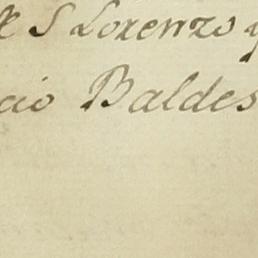 S Lorenzo y
cio Baldes